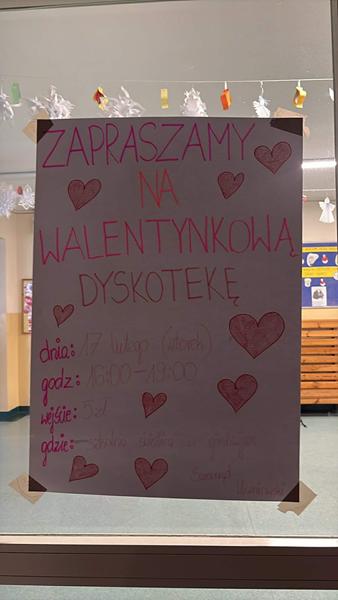 ZAPRASZAMY
NA
WALENTYNKOWĄ
DYSKOTEKĘ
dnia: 17 lutego (wtorek)
godz: 16:00-19:00
wejście: 5 zł
gdzie: szkolna świetlica
Samorząd
Uczniowski